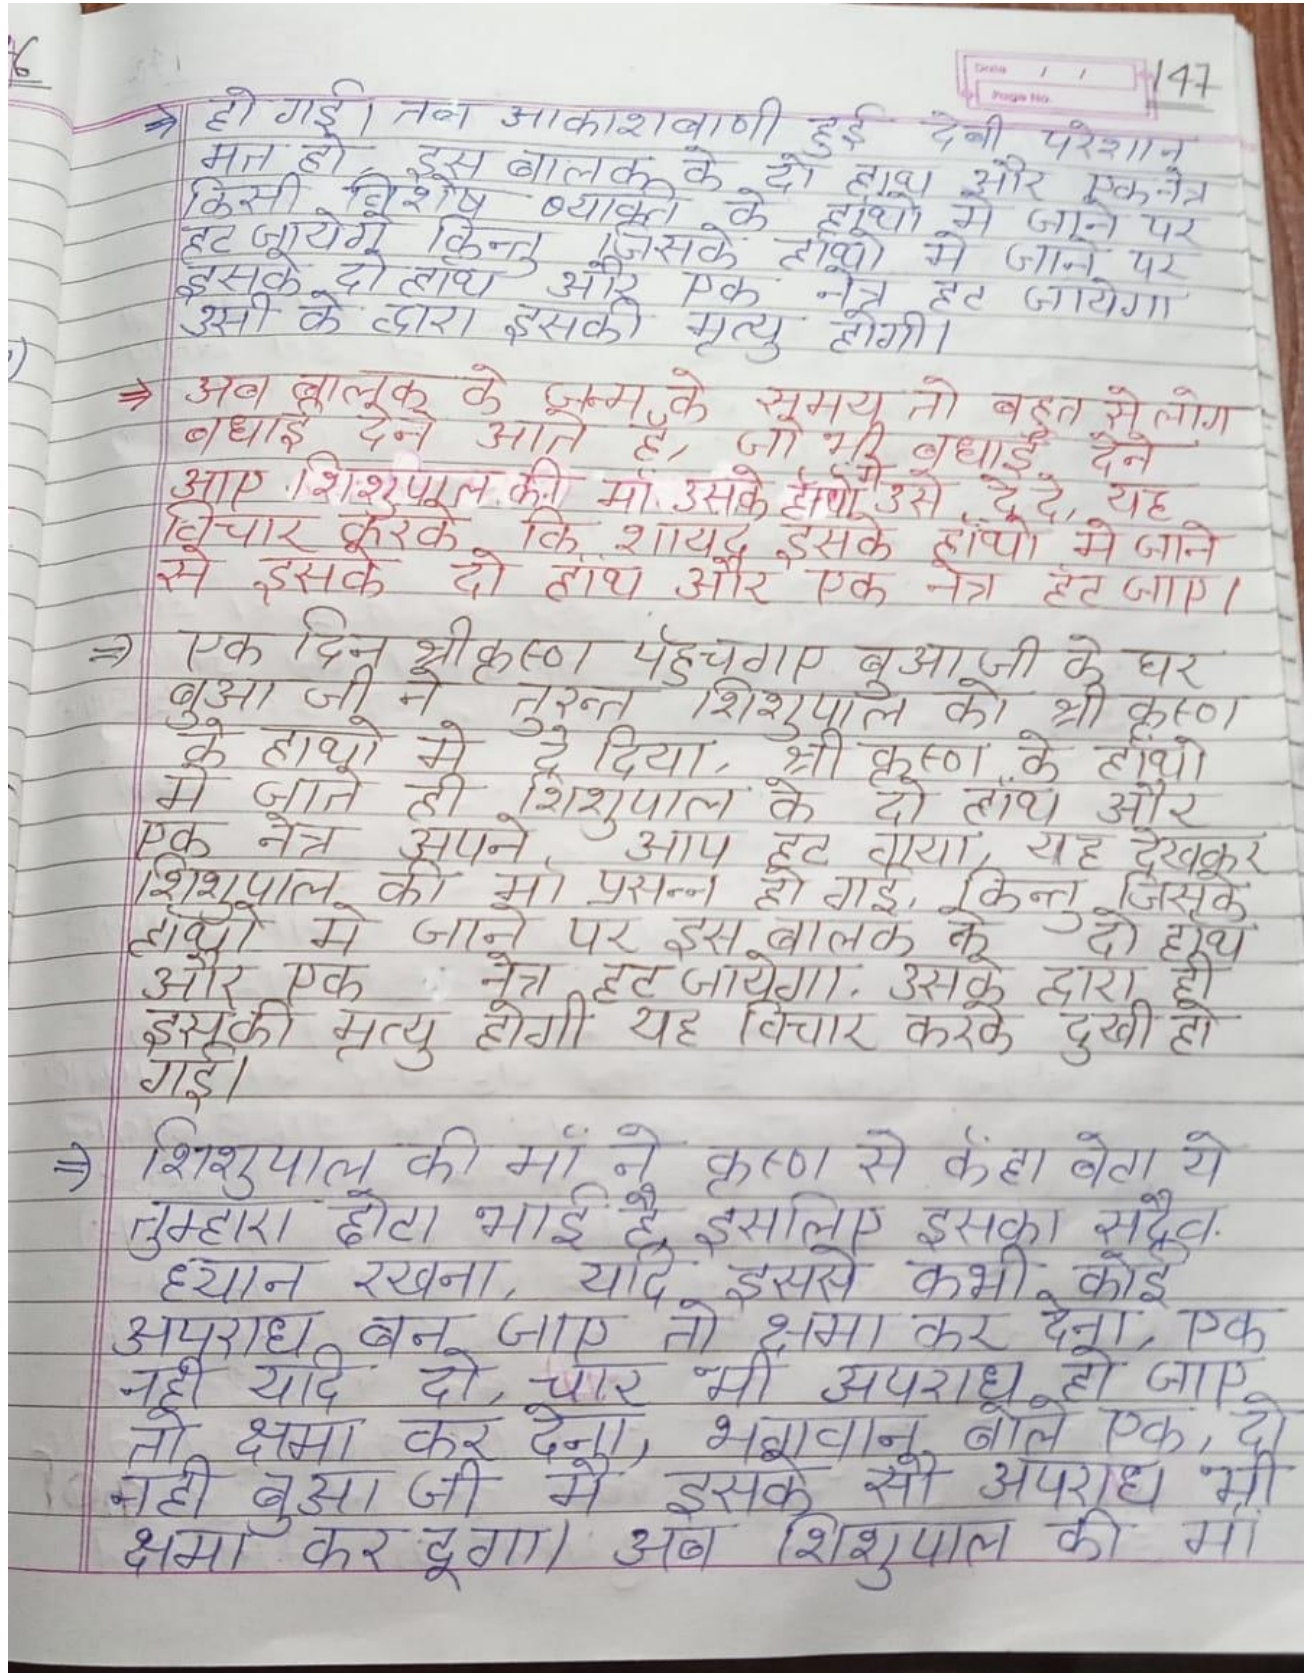 147
Date / /
Page No.
⇒ हो गई। तब आकाशवाणी हुई देवी परेशान
मत हो, इस बालक के दो हाथ और एक नेत्र
किसी विशेष व्यक्ति के हाँथो मे जाने पर
हट जायेगे किन्तु जिसके हाँथो मे जाने पर
इसके दो हाथ और एक नेत्र हट जायेगा
उसी के द्वारा इसकी मृत्यु होगी।
⇒ अब बालक के जन्म के समय तो बहुत से लोग
बधाई देने आते है, जो भी बधाई देने
आए शिशुपाल की माँ उसके हाँथो मे उसे दे दे, यह
विचार करके कि शायद इसके हाँथो मे जाने
से इसके दो हाथ और एक नेत्र हट जाए।
⇒ एक दिन श्री कृष्ण पँहुच गए बुआ जी के घर
बुआ जी ने तुरन्त शिशुपाल को श्री कृष्ण
के हाथो मे दे दिया, श्री कृष्ण के हाँथो
मे जाते ही शिशुपाल के दो हाँथ और
एक नेत्र अपने आप हट गया, यह देखकर
शिशुपाल की माँ प्रसन्न हो गई, किन्तु जिसके
हाँथो मे जाने पर इस बालक के दो हाथ
और एक नेत्र हट जायेगा. उसके द्वारा ही
इसकी मृत्यु होगी यह विचार करके दुखी हो
गई।
⇒ शिशुपाल की माँ ने कृष्ण से कँहा बेटा ये
तुम्हारा छोटा भाई है, इसलिए इसका सदैव
ध्यान रखना, यदि इससे कभी कोई
अपराध बन जाए तो क्षमा कर देना, एक
नही यदि दो, चार भी अपराध हो जाए
तो क्षमा कर देना, भगवान बोले एक, दो
नही बुआ जी मै इसके सौ अपराध भी
क्षमा कर दूगा। अब शिशुपाल की माँ